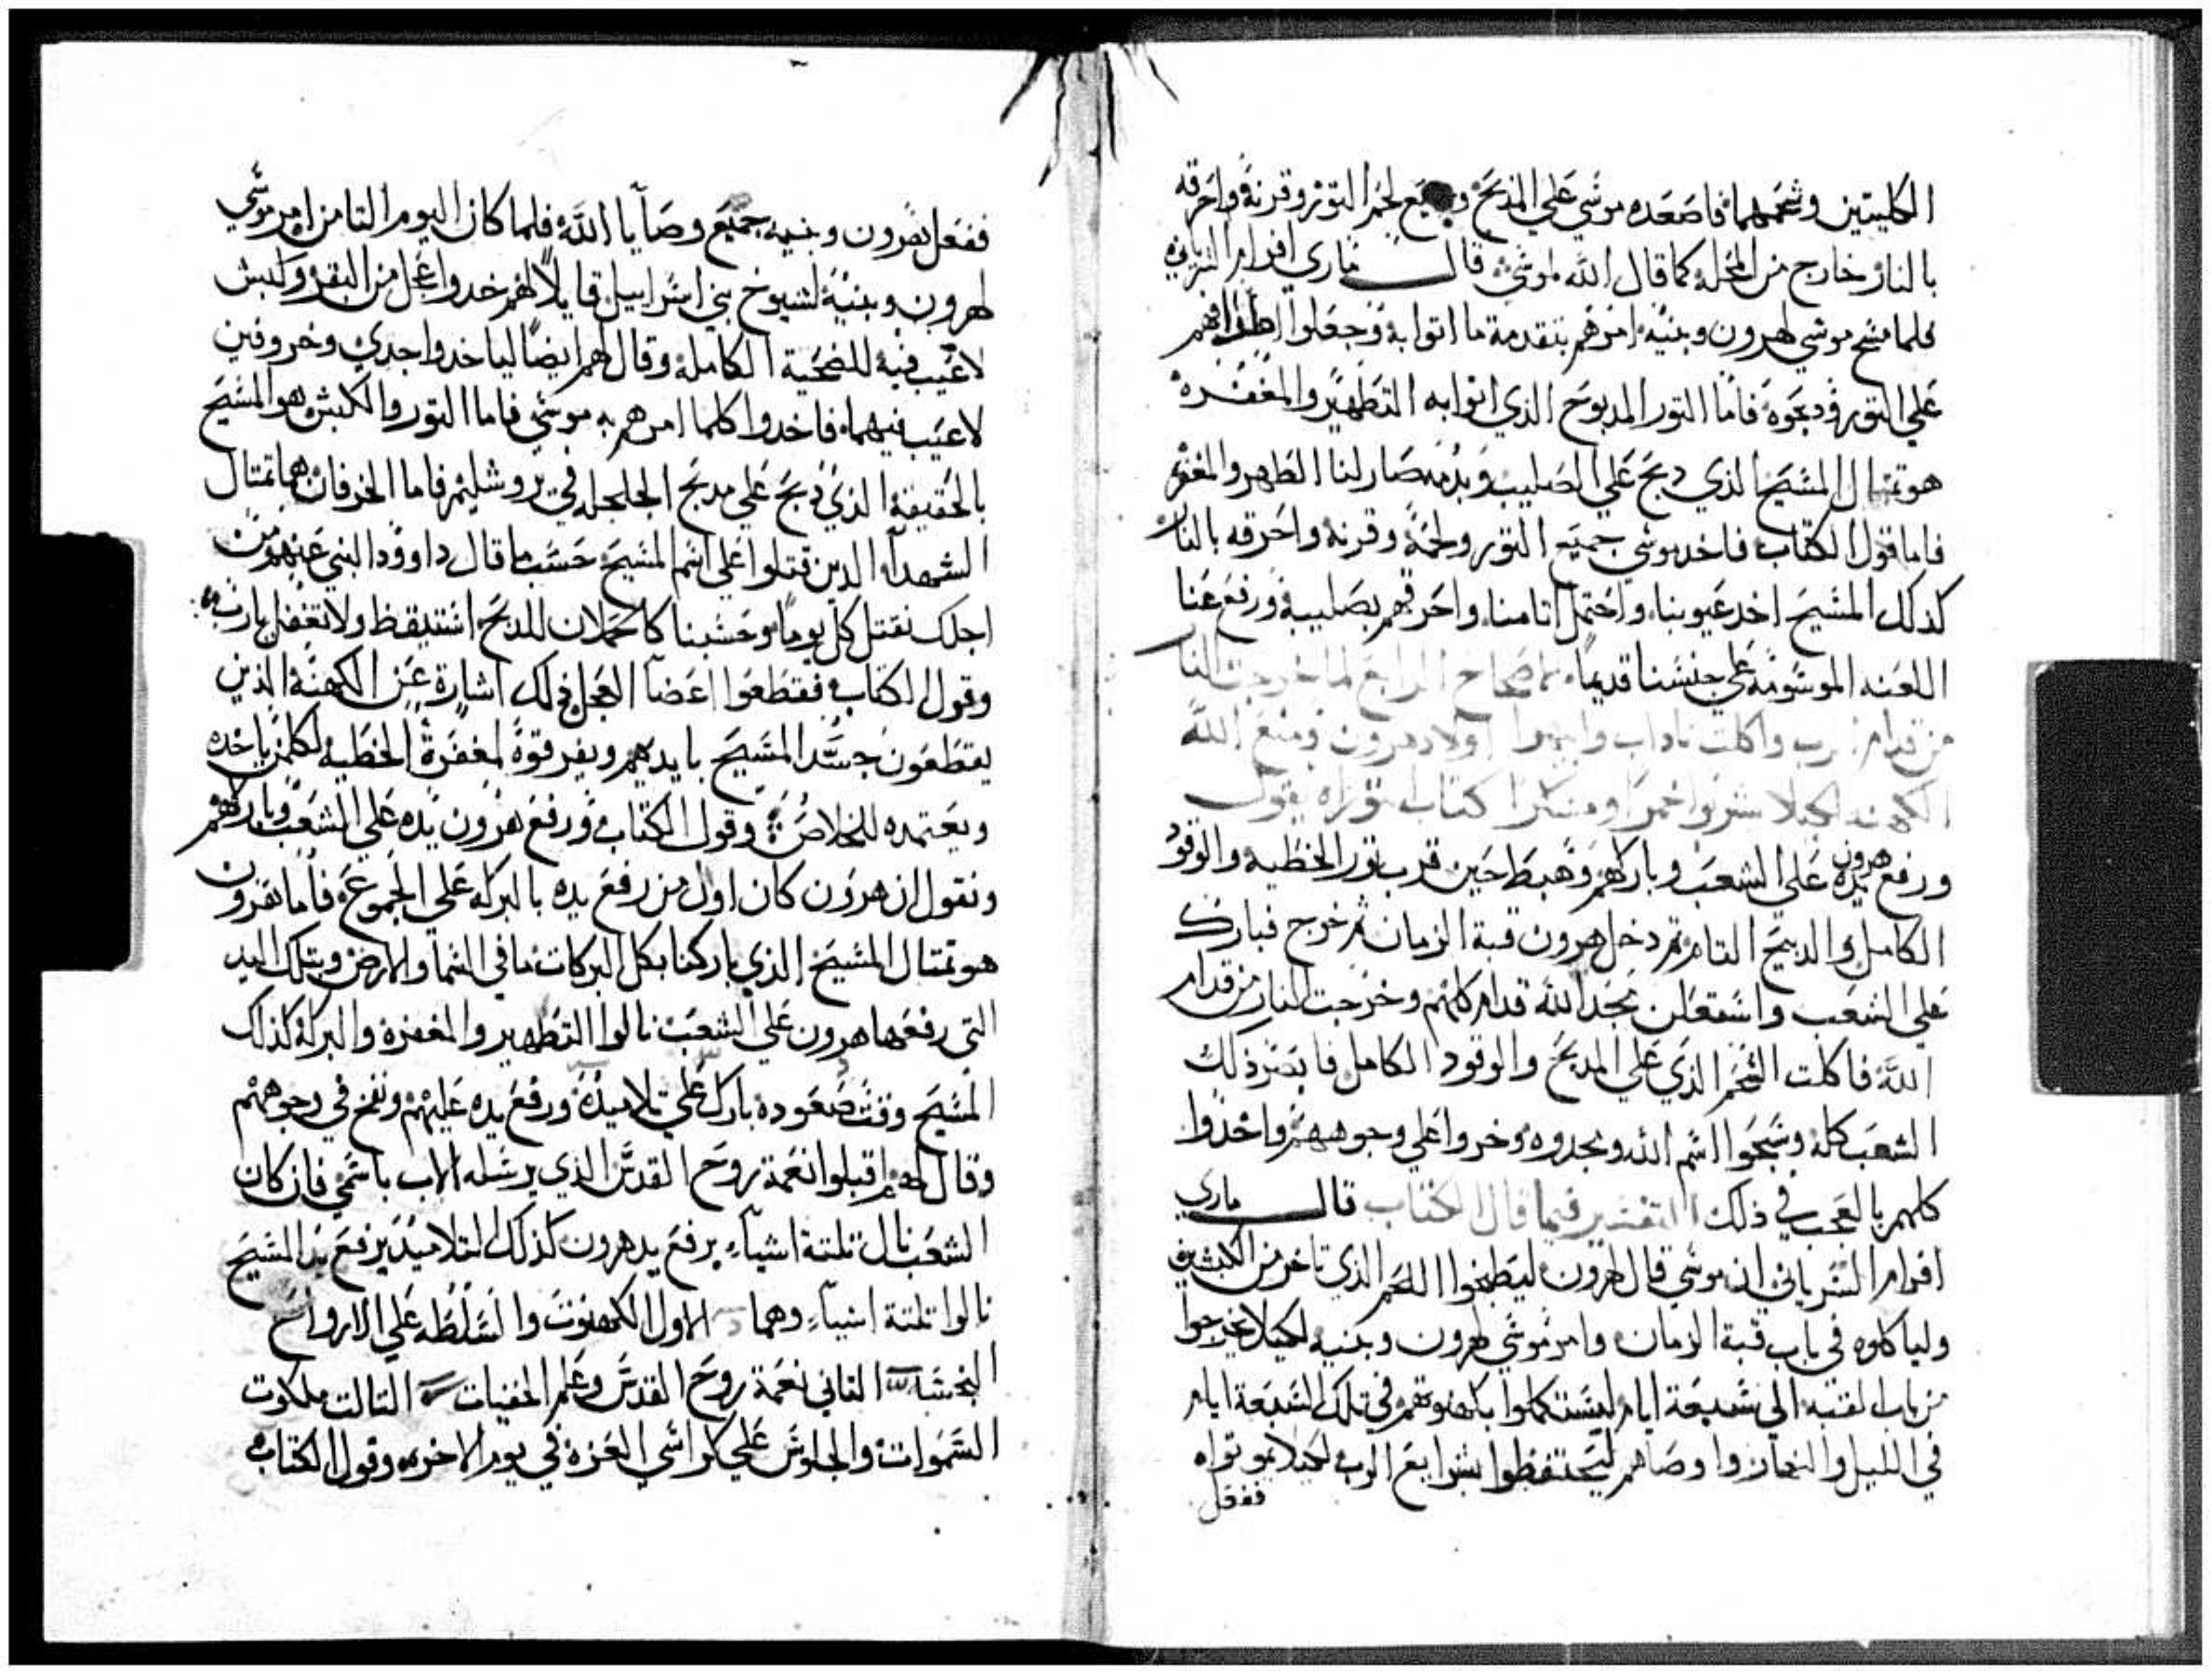 الكليتين وشحمهما فاصعده موسي علي المدبح وجميع لحم التور وقرنه واحرقه
بالنار خارج من المحله كما قال الله لموسي قال ماري افرام السرياني
فلما مسح موسي لهرون وبنيه امرهم بتقدمة ما اتوا به وجعلوا اطرافهم
علي التور ودبحوه فاما التور المدبوح الذي اتوا به التطهير والمغفره
هو تمتال المسيح الذي دبح علي الصليب وبدمه صار لنا الطهر والمغفره
فاما قول الكتاب فاخد موسي جميع التور ولحمه وقرنه واحرقه بالنار
كذلك المسيح اخد عيوبنا واحتمل اتامنا واحرقهم بصليبه ورفع عنا
اللعنه الموسومه علي جنسنا قديما الاصحاح الرابع لما خرجت النار
من قدام الرب واكلت ناداب وابيهوا اولاد هرون ومنع الله
الكهنه لكيلا يشربوا خمرا ومسكرا كتاب توراه يقول
ورفع هرون يده علي الشعب وباركهم وهبط حين قرب تور الخطيه والوقود
الكامل والدبيح التام تم دخل هرون قبة الزمان تم خرج فبارك
علي الشعب واستعلن مجد الله قدام كلهم وخرجت النار من قدام
الله فاكلت الشحم الذي علي المدبح والوقود الكامل فابصر ذلك
الشعب كله وسبحوا اسم الله ومجدوه وخروا علي وجوههم واخدوا
كلهم بالعجب في ذلك التفسير فيما قال الكتاب قال ماري
افرام السرياني ان موسي قال لهرون ليطبخوا اللحم الذي تاخر من الكبشين
ولياكلوه في باب قبة الزمان وامر موسي لهرون وبنيه لكيلا يخرجوا
من باب القبه الي سبعة ايام ليستكملوا بكهنوتهم في تلك السبعة ايام
في الليل والنهار واوصاهم ليحتفظوا بشرايع الرب لكيلا يموتواه
ففعل
ففعل هرون وبنيه جميع وصايا الله فلما كان اليوم التامن امر موسي
لهرون وبنيه لشيوخ بني اسراييل قايلا لهم خدوا عجل من البقر وكبش
لا عيب فيه للضحية الكامله وقال لهم ايضا لياخدوا جدي وخروفين
لا عيب فيهما فاخدوا كلما امرهم به موسي فاما التور والكبش هو المسيح
بالحقيقه الذي دبح علي مدبح الجلجله في يروشليم فاما الخرفان هما تمتال
الشهدآء الدين قتلوا علي اسم المسيح حسب ما قال داوود النبي عنهم من
اجلك نقتل كل يوما وحسبنا كالحملان للدبح استيقظ ولا تغفل يارب
وقول الكتاب فقطعوا اعضآ العجل في لك اشارة عن الكهنة الذين
يقطعون جسد المسيح بايديهم ويفرقوه لمغفرة الخطيه لكلمن ياخده
ويعتمده للخلاص وقول الكتاب ورفع هرون يده علي الشعب وباركهم
ونقول ان هرون كان اول من رفع يده بالبركه علي الجموع فاما هرون
هو تمتال المسيح الذي باركنا بكل البركات ما في السما والارض وبتلك اليد
التي رفعها هرون علي الشعب نالوا التطهير والمغفره والبركه كذلك
المسيح وقت صعوده بارك علي تلاميده ورفع يده عليهم ونفخ في وجوههم
وقال لهم اقبلوا نعمة روح القدس الذي يرسله الاب باسمي فان كان
الشعب نال تلتة اشيآء برفع يد هرون كذلك التلاميد برفع يد المسيح
نالوا تلتة اشيآء وهما الاول الكهنوت والسلطه علي الارواح
النجسه التاني نعمة روح القدس وعلم الخفيات التالت ملكوت
السموات والجلوس علي كراسي العزه في يوم الاخره وقول الكتاب